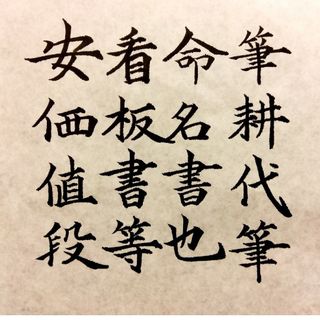 筆耕代筆
命名書也
看板書等
安価値段